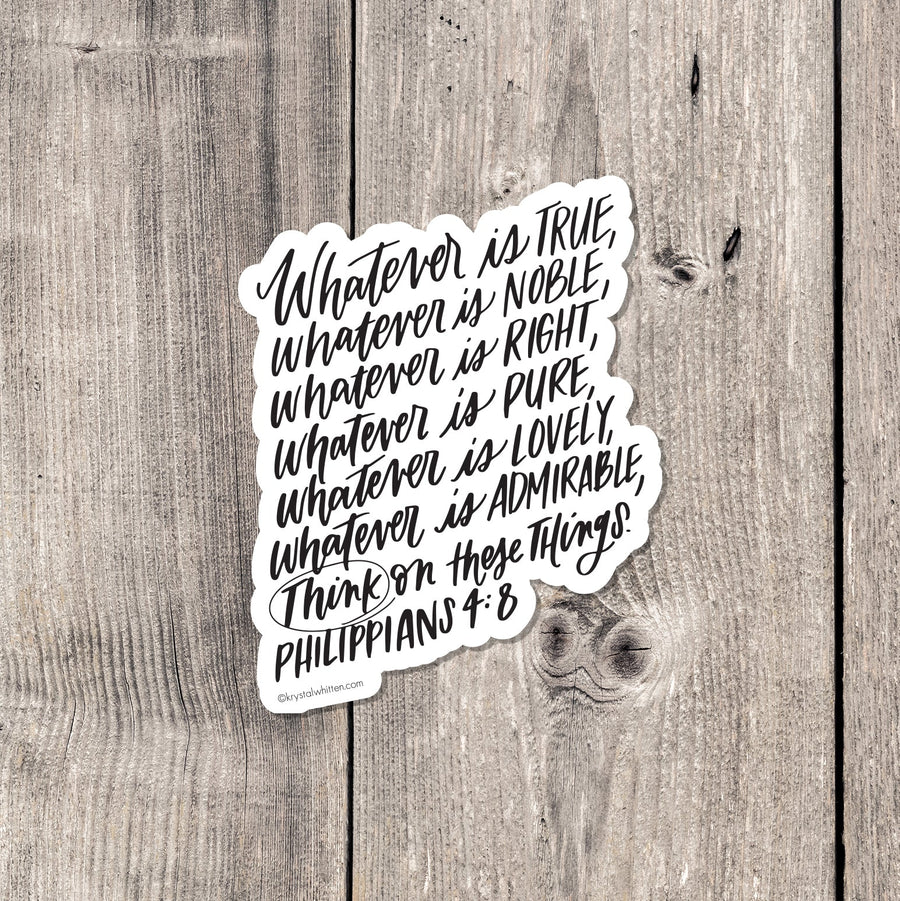 Whatever is TRUE,
whatever is NOBLE,
whatever is RIGHT,
whatever is PURE,
whatever is LOVELY,
whatever is ADMIRABLE,
Think on these THings.
PHILIPPIANS 4:8
©krystalwhitten.com